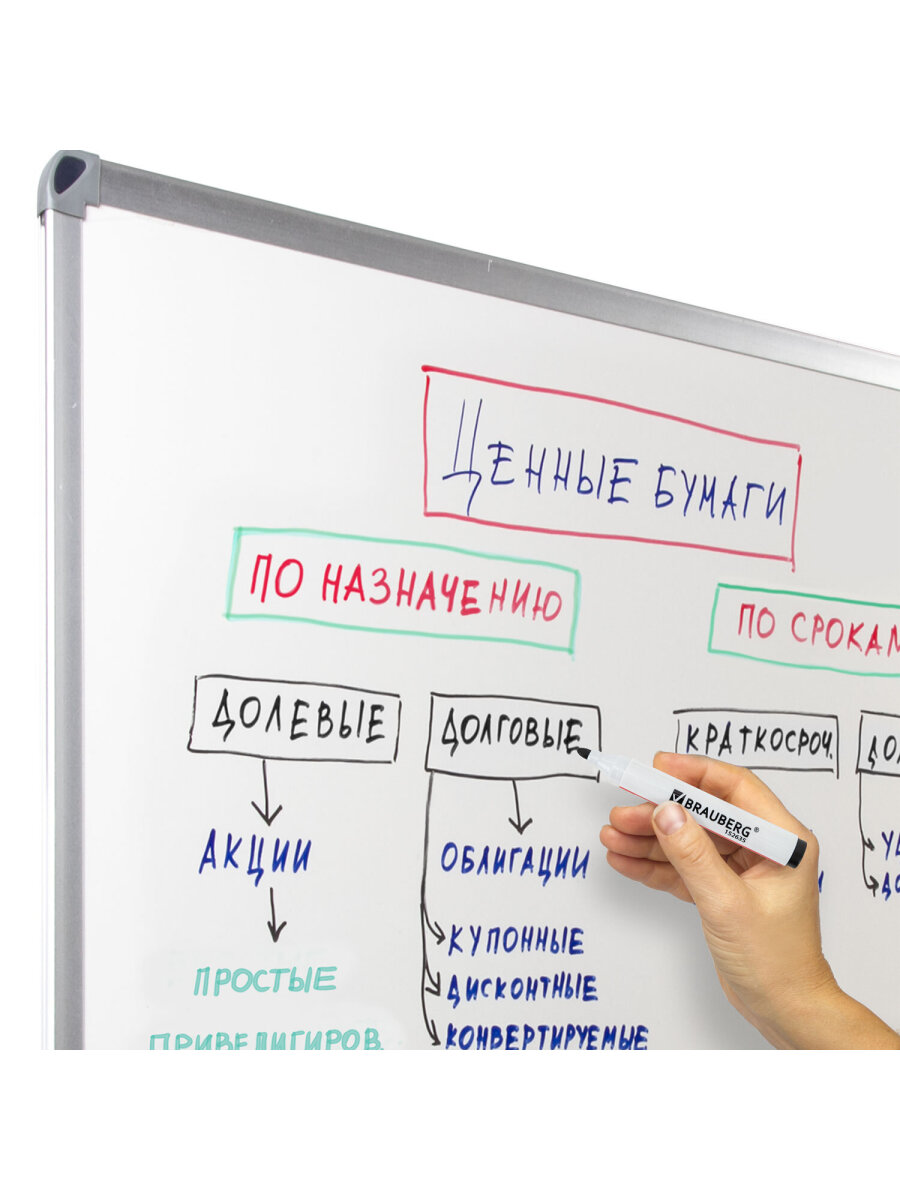 ЦЕННЫЕ БУМАГИ
ПО НАЗНАЧЕНИЮ
ПО СРОКАМ
ДОЛЕВЫЕ
ДОЛГОВЫЕ
КРАТКОСРОЧ.
АКЦИИ
ОБЛИГАЦИИ
BRAUBERG®
152635
КУПОННЫЕ
ПРОСТЫЕ
ДИСКОНТНЫЕ
ПРИВЕЛИГИРОВ.
КОНВЕРТИРУЕМЫЕ